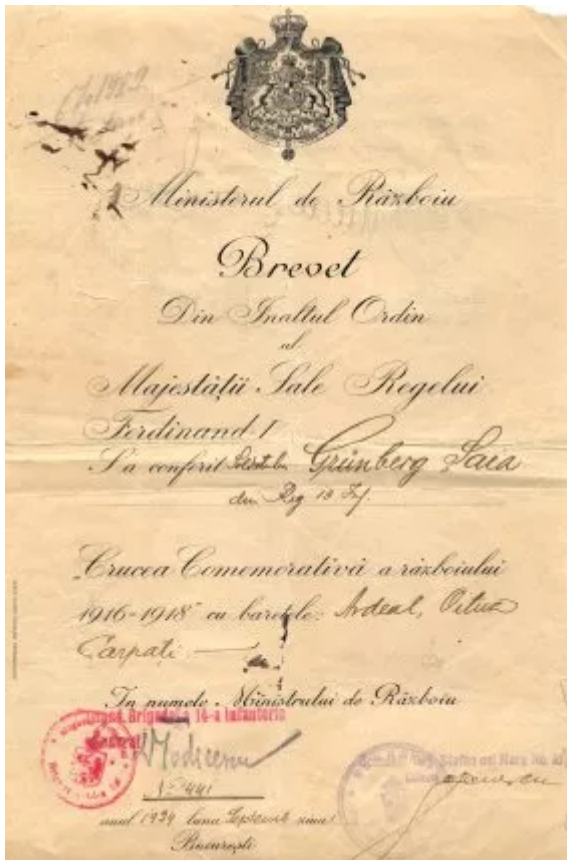 Ministerul de Răsboiu
Brevet
Din Inaltul Ordin
al
Majestății Sale Regelui
Ferdinand I
S'a conferit Soldatului Grünberg Saia
din Reg 13 Inf.
„Crucea Comemorativă a războiului
1916-1918" cu baretele: Ardeal, Oituz
Carpați
In numele Ministrului de Războiu
Brigadei 14-a Infanterie
General
No 441
anul 1924 luna ziua
București
Ștefan cel Mare No.